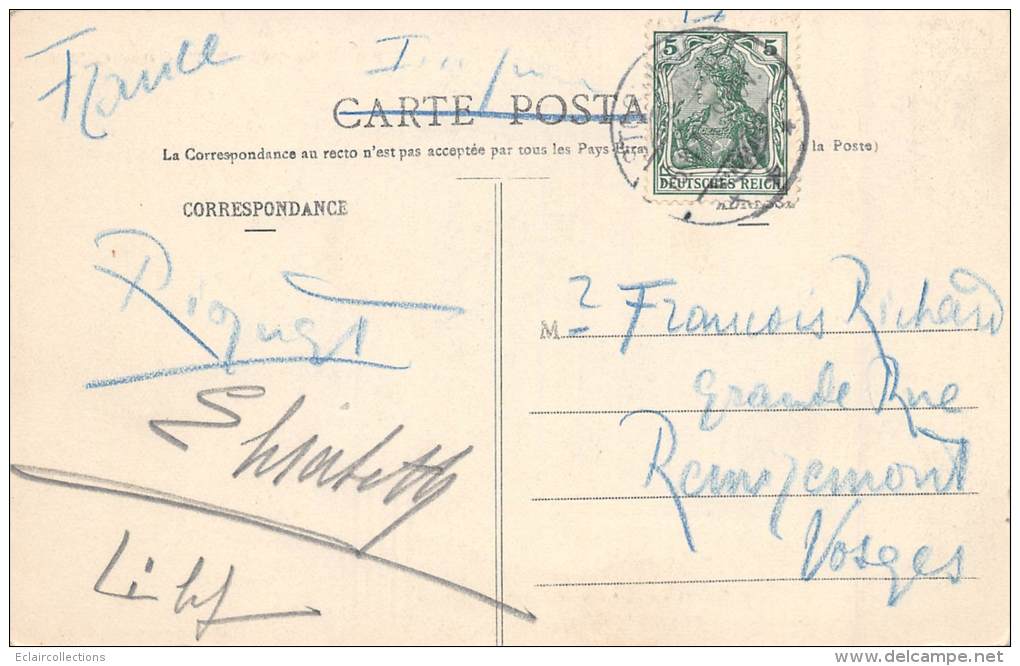 France
CARTE POSTA
La Correspondance au recto n'est pas acceptée par tous les Pays à la Poste)
5 5
DEUTSCHES REICH
CORRESPONDANCE
M François Richard
Grande Rue
Remiremont
Vosges
Riquet
Elisabeth
Eclaircollections
www.delcampe.net